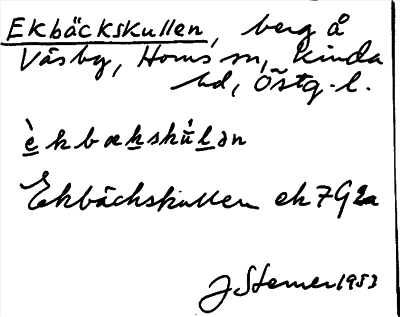 Ekbäckskullen, berg å
Väsby, Horns sn, Kinda
hd, Östg. l.
èkbækskúlən
Ekbäckskullen ek 7G2a
J Stemer 1953